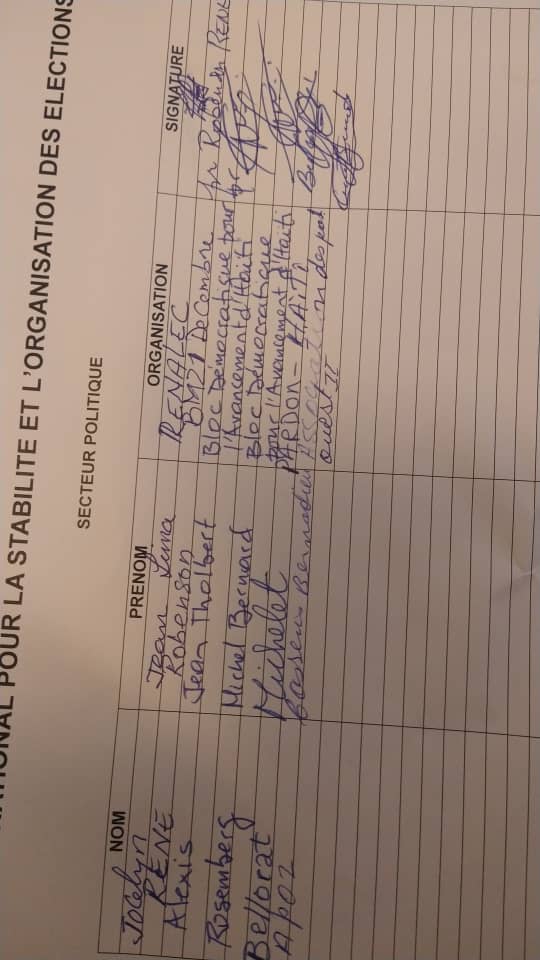 NATIONAL POUR LA STABILITE ET L'ORGANISATION DES ELECTIONS
SECTEUR POLITIQUE
NOM PRENOM ORGANISATION SIGNATURE
Jocelyn Jean Lima RENALEC
RENE Robenson OM21 Decembre pr Robenson RENE
Alexis Jean Tholbert Bloc Démocratique pour
l'Avancement d'Haïti
Rosemberg Michel Bernard Bloc Démocratique
pour l'Avancement d'Haïti
Bellorat Michelet PARDON - HAÏTI
Apoz Bernadin Association des
ouest II